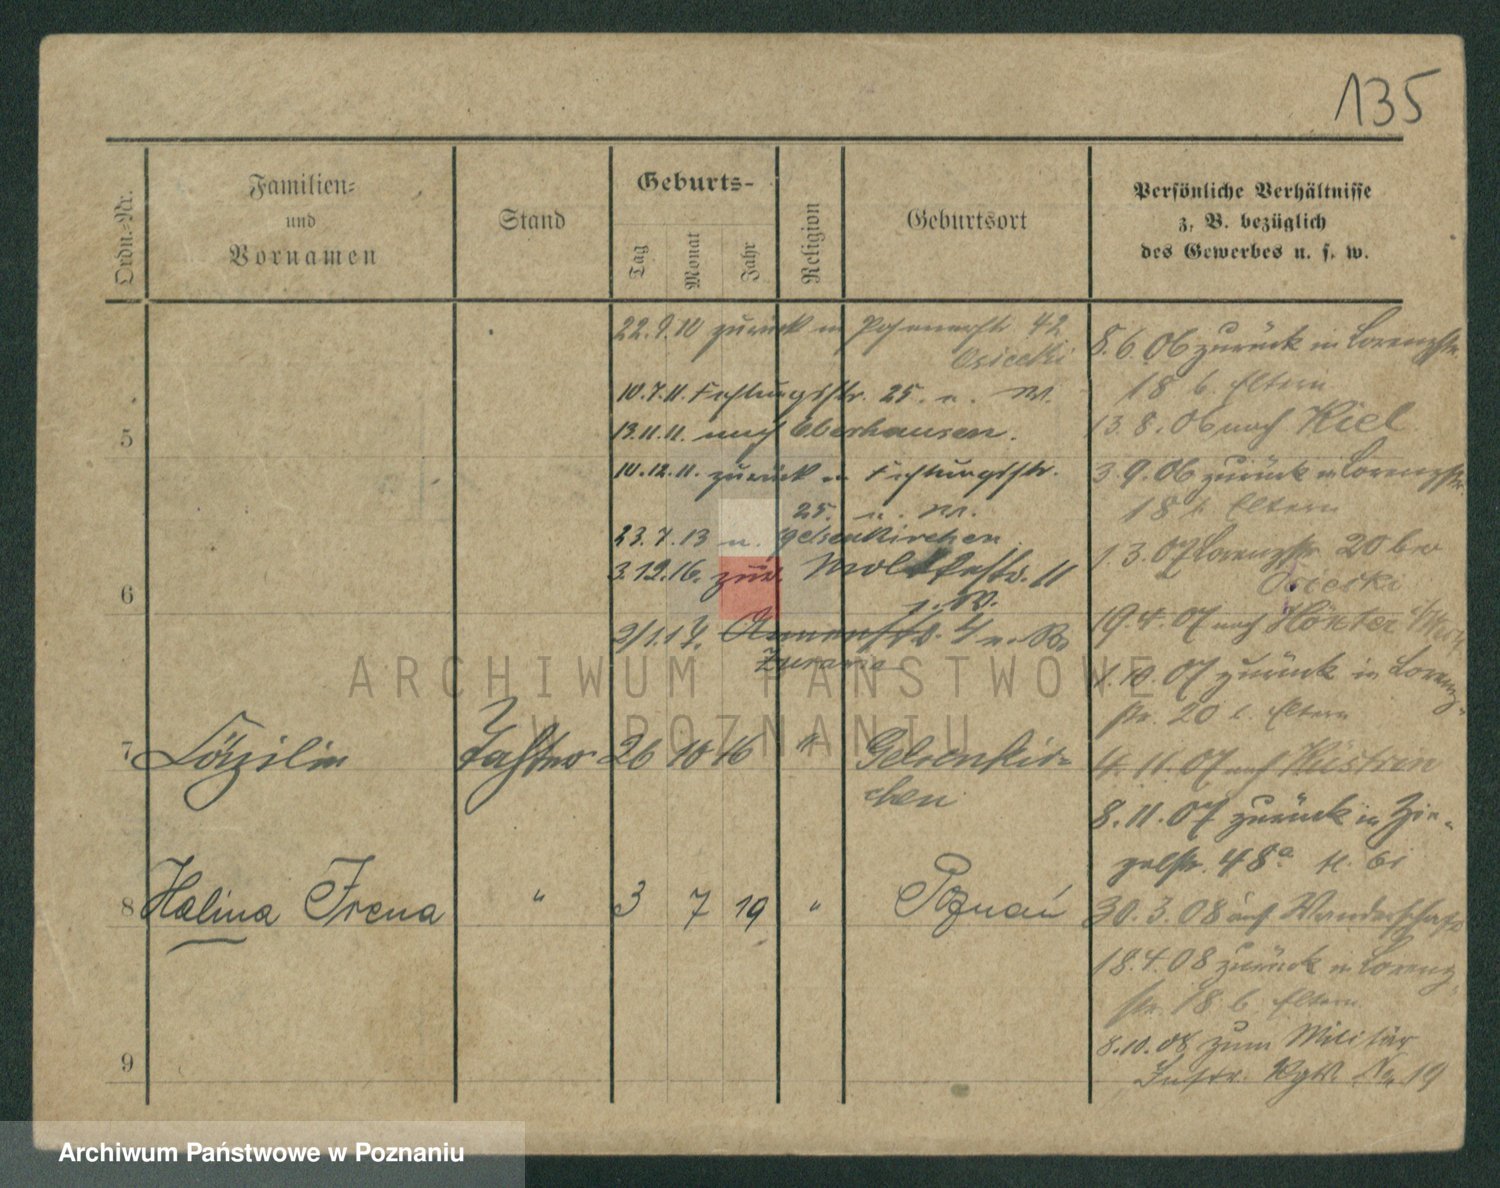 135
Ordn.-Nr.
Familien-
und
Vornamen
Stand
Geburts-
Tag
Monat
Jahr
Religion
Geburtsort
Persönliche Verhältnisse
z. B. bezüglich
des Gewerbes u. s. w.
22.9.10 zurück in Posenerstr 42
Osiecki
10.7.11. Festungsstr. 25. n. W.
13.11.11. nach Oberhausen.
10.12.11. zurück in Festungsstr.
25. n. W.
23.7.13 n. Gelsenkirchen
3.12.16. zur. Moltkestr. 11
n. W.
2/1.17.
Żurawia
5
6
7 Cäzilie Tochter 26 10 16 " Gelsenkir-
chen
8 Halina Irena " 3 7 19 " Poznań
9
8.6.06 zurück in Lorenzstr.
18 b. Eltern
13.8.06 nach Kiel
3.9.06 zurück in Lorenzstr.
18 b. Eltern
1.3.07 Lorenzstr. 20 bei
Osiecki
19.4.07 nach Höxter
1.10.07 zurück in Lorenz-
str. 20 b. Eltern
4.11.07 nach Küstrin
8.11.07 zurück in Zie-
gelstr. 48a
30.3.08 auf Wanderschaft
18.4.08 zurück in Lorenz-
str. 18 b. Eltern
8.10.08 zum Militär
Inftr. Rgt. No 19
ARCHIWUM PAŃSTWOWE
W POZNANIU
Archiwum Państwowe w Poznaniu